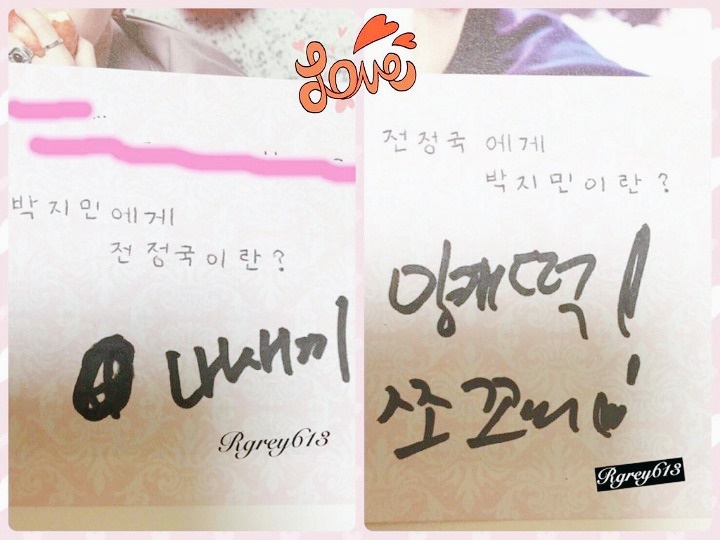 Love
박지민에게
전정국이란?
내새끼
Rgrey613
전정국에게
박지민이란?
망개떡!
쪼꼬미!
Rgrey613